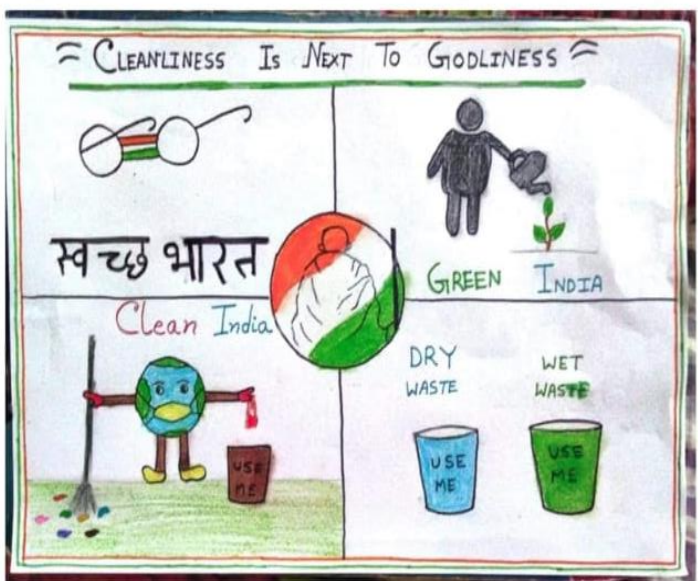 CLEANLINESS IS NEXT TO GODLINESS
स्वच्छ भारत
GREEN INDIA
Clean India
USE
ME
DRY
WASTE
WET
WASTE
USE
ME
USE
ME